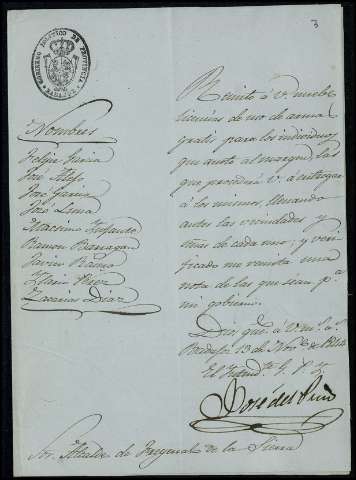 3
GOBIERNO POLITICO DE PROVINCIA
BADAJOZ
Nombres
Felipe Garcia
José
José Garcia
José Lema
Maximo
Ramon Barragan
Javier Ramos
Perez
Zacarias Diaz
Remito á V. nueve
licencias de uso de arma
gratis para los individuos
que anoto al margen, las
que procederá V. á entregar
á los mismos, llenando
antes las vecindades y
señas de cada uno; y veri-
ficado me remita una
nota de las que sean pa
mi gobierno.
Dios gue. á V. ms. as.
Badajoz 13 de Nove. de
El Intend.te G. P. I.
José del Pino
Sor. Alcalde de Fregenal de la Sierra